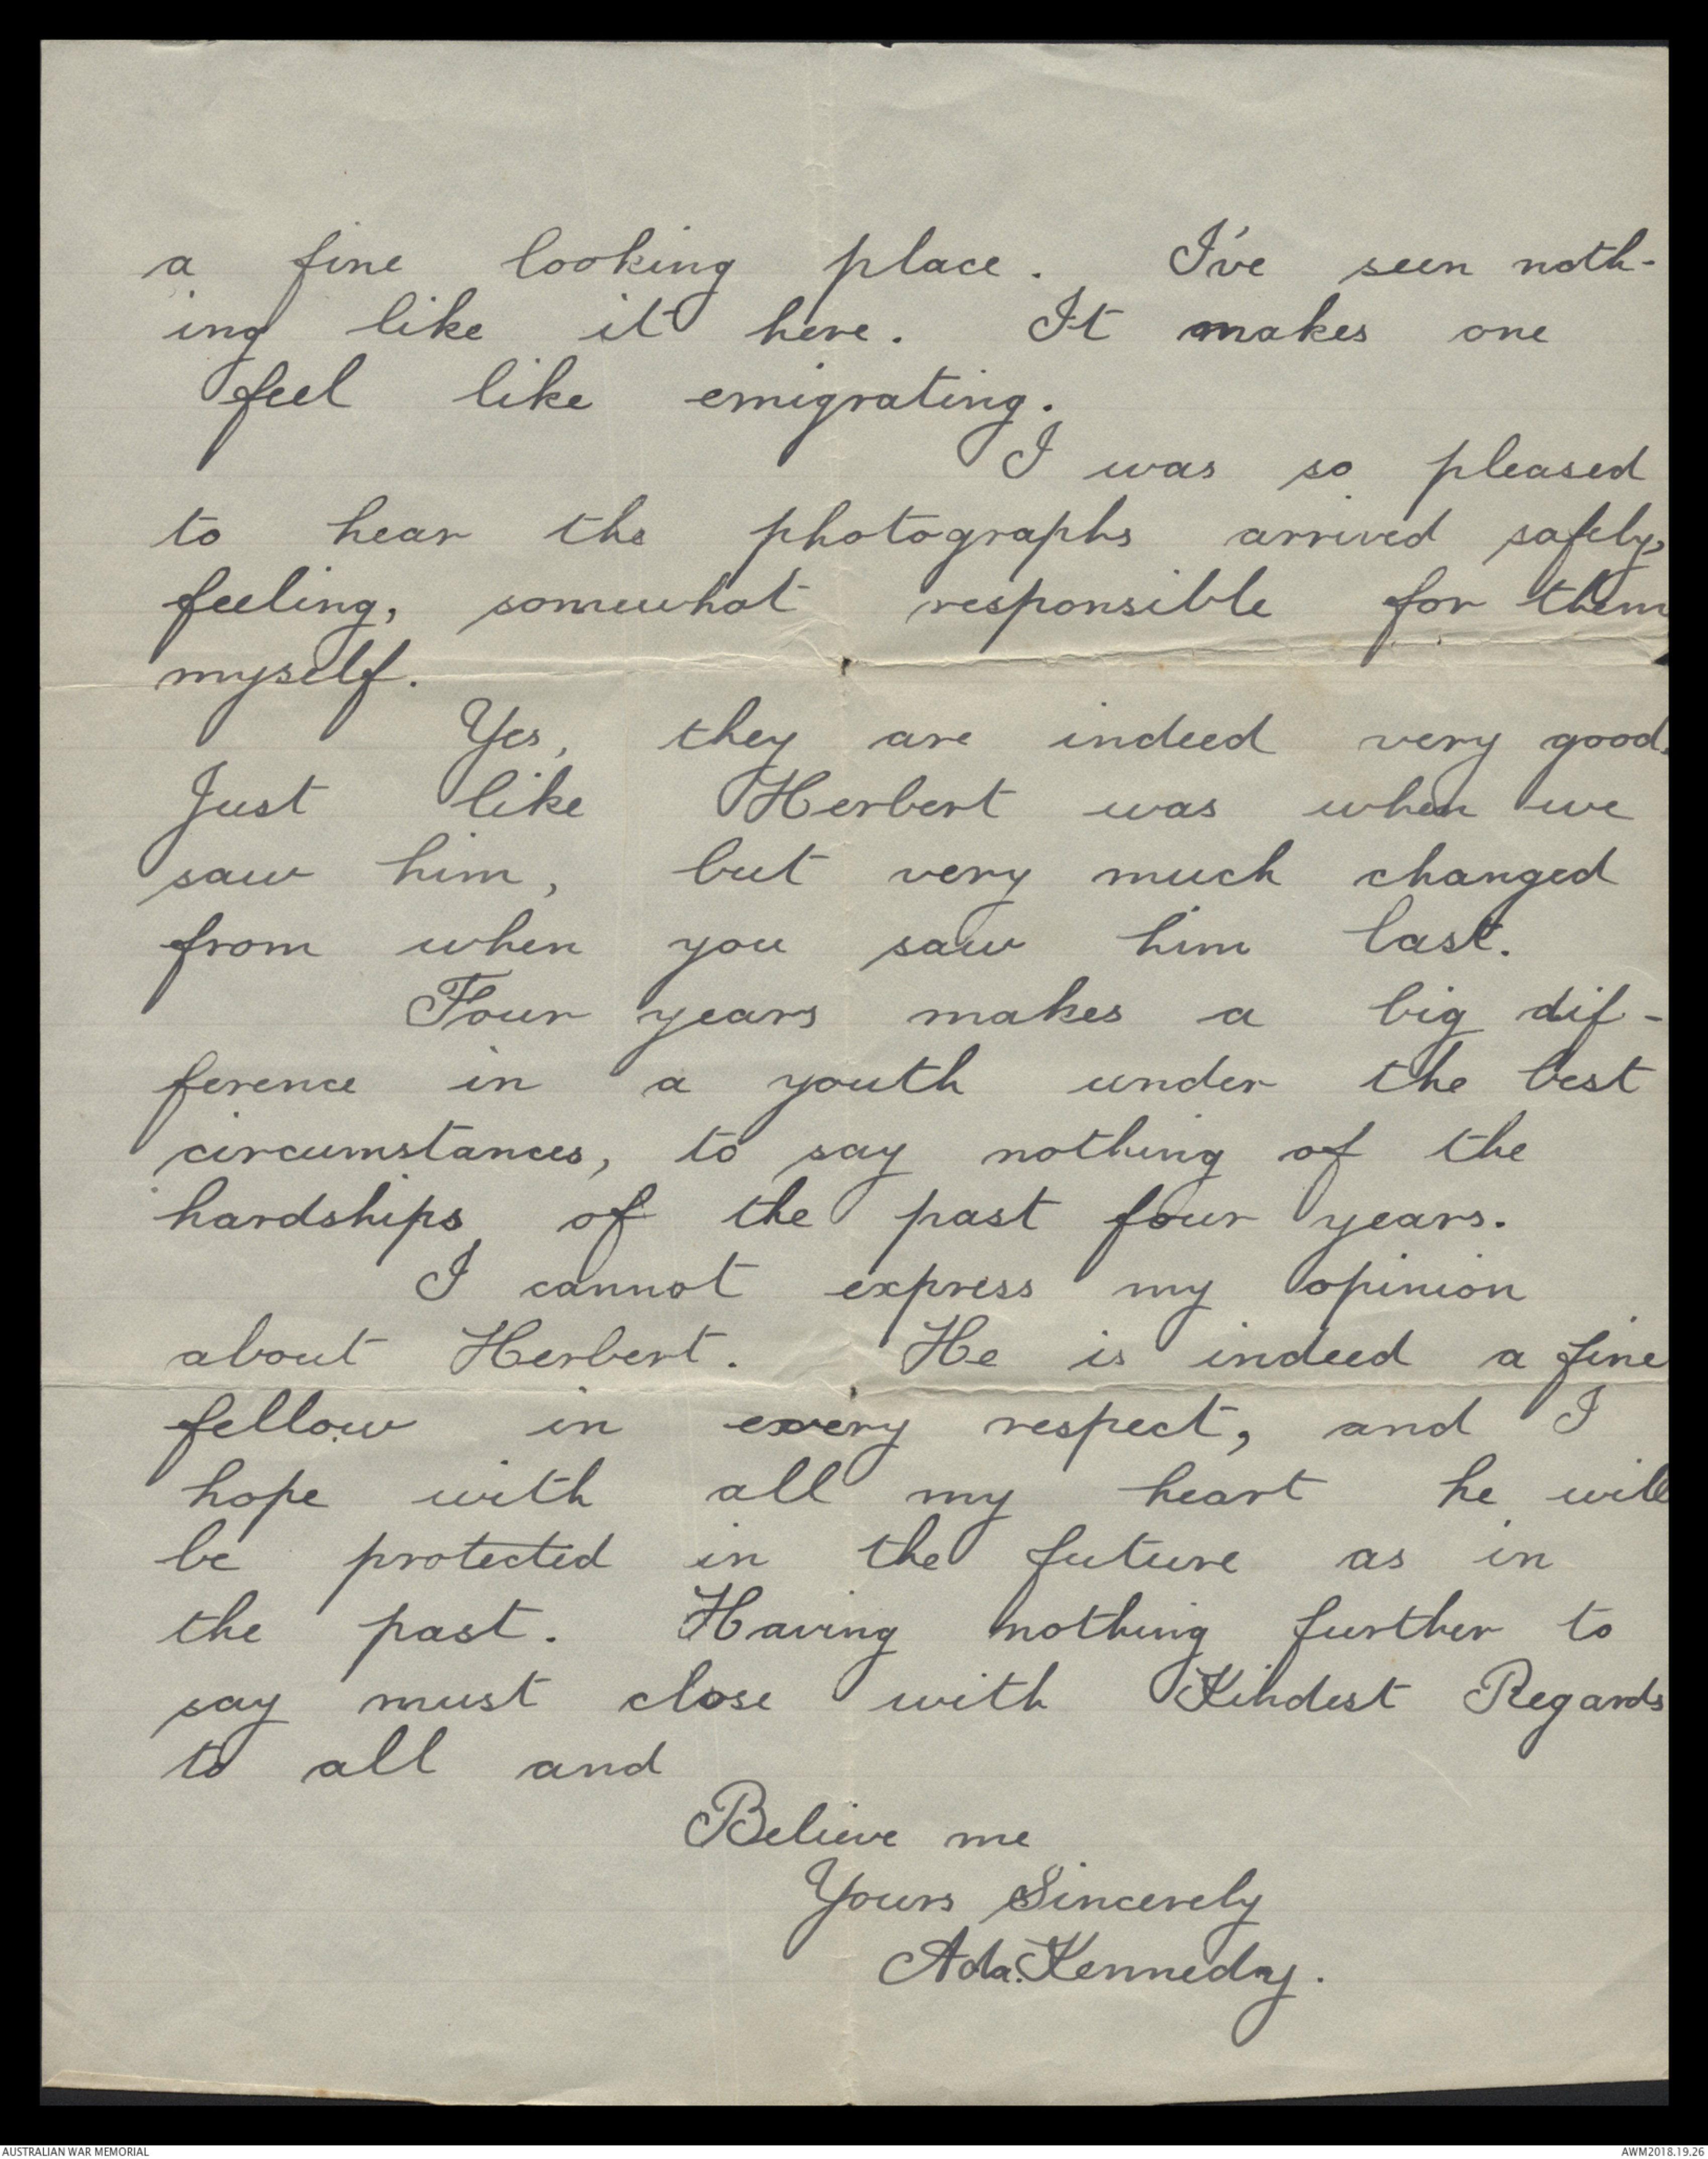 a fine looking place. I've seen noth-
ing like it here. It makes one
feel like emigrating.
I was so pleased
to hear the photographs arrived safely,
feeling, somewhat responsible for them
myself.
Yes, they are indeed very good.
Just like Herbert was when we
saw him, but very much changed
from when you saw him last.
Four years makes a big dif-
ference in a youth under the best
circumstances, to say nothing of the
hardships of the past four years.
I cannot express my opinion
about Herbert. He is indeed a fine
fellow in every respect, and I
hope with all my heart he will
be protected in the future as in
the past. Having nothing further to
say must close with Kindest Regards
to all and
Believe me
Yours Sincerely
Ada. Kennedy.
AUSTRALIAN WAR MEMORIAL
AWM2018.19.26